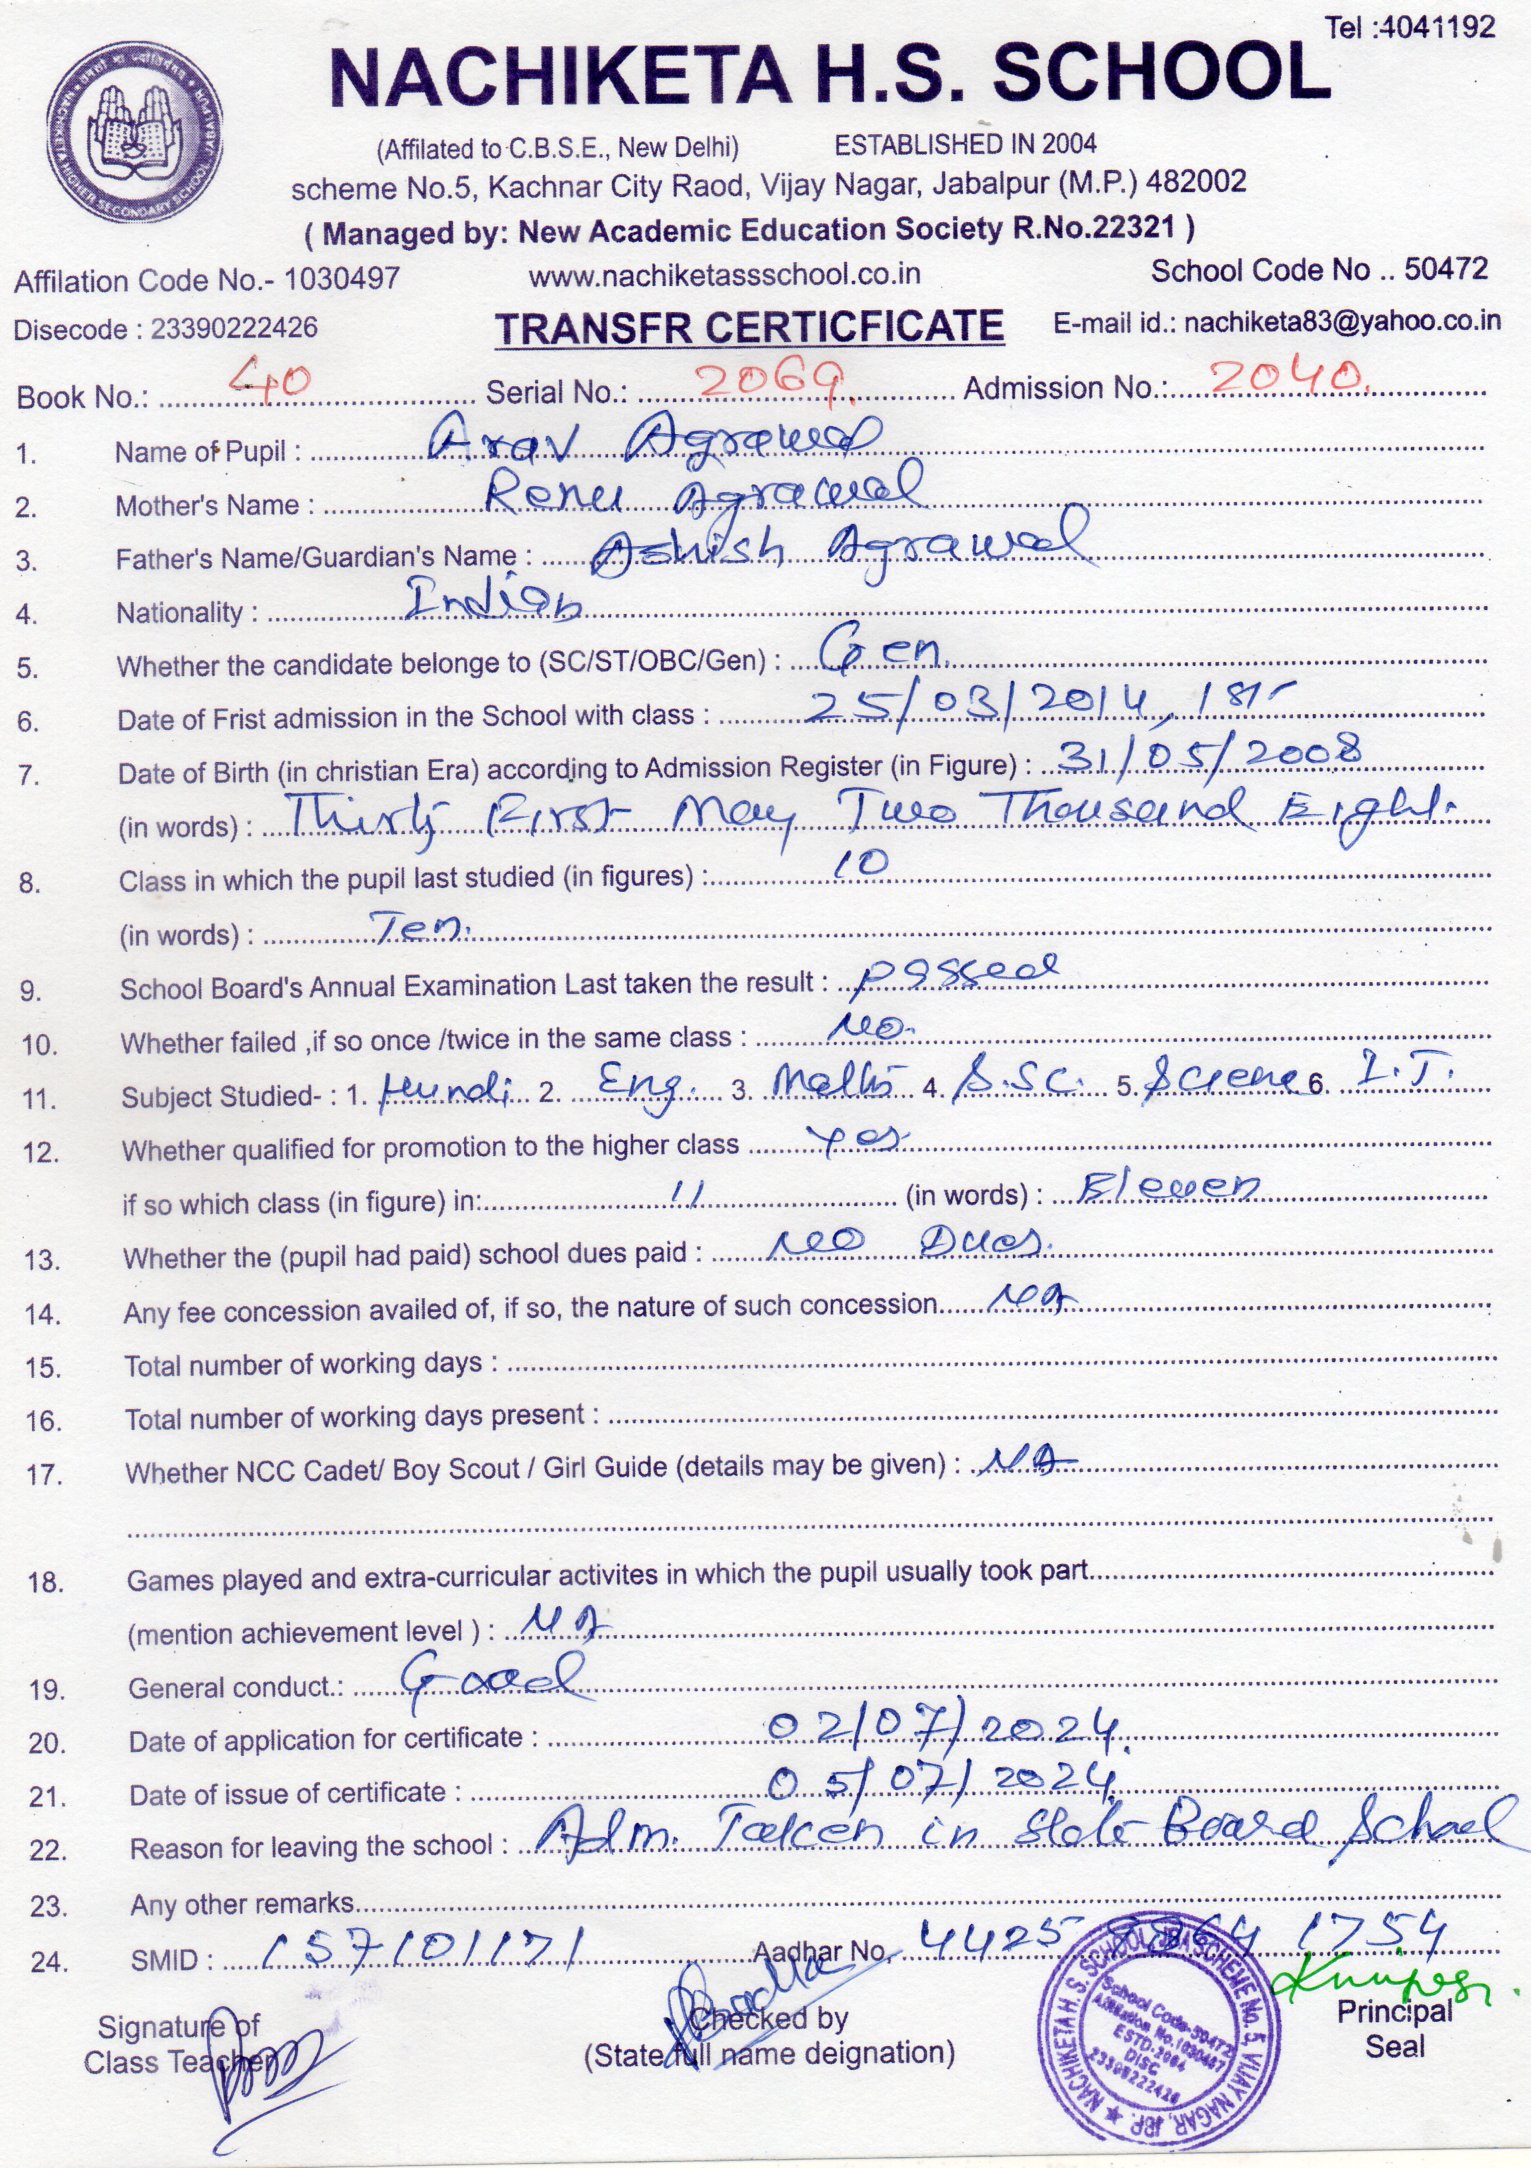 Tel :4041192
NACHIKETA H.S. SCHOOL
(Affilated to C.B.S.E., New Delhi) ESTABLISHED IN 2004
scheme No.5, Kachnar City Raod, Vijay Nagar, Jabalpur (M.P.) 482002
( Managed by: New Academic Education Society R.No.22321 )
Affilation Code No.- 1030497 www.nachiketassschool.co.in School Code No .. 50472
Disecode : 23390222426 TRANSFR CERTICFICATE E-mail id.: nachiketa83@yahoo.co.in
Book No.: 40 Serial No.: 2069. Admission No.: 2040.
1. Name of Pupil : Arav Agrawal
2. Mother's Name : Renu Agrawal
3. Father's Name/Guardian's Name : Ashish Agrawal
4. Nationality : Indian
5. Whether the candidate belonge to (SC/ST/OBC/Gen) : Gen.
6. Date of Frist admission in the School with class : 25/03/2014, 1st
7. Date of Birth (in christian Era) according to Admission Register (in Figure) : 31/05/2008
(in words) : Thirty First May Two Thousand Eight.
8. Class in which the pupil last studied (in figures) : 10
(in words) : Ten.
9. School Board's Annual Examination Last taken the result : passed
10. Whether failed ,if so once /twice in the same class : No.
11. Subject Studied- : 1. Hindi 2. Eng. 3. Maths 4. S.SC. 5. Science 6. I.T.
12. Whether qualified for promotion to the higher class yes.
if so which class (in figure) in: 11 (in words) : Eleven
13. Whether the (pupil had paid) school dues paid : NO Dues.
14. Any fee concession availed of, if so, the nature of such concession NA
15. Total number of working days :
16. Total number of working days present :
17. Whether NCC Cadet/ Boy Scout / Girl Guide (details may be given) : NA
18. Games played and extra-curricular activites in which the pupil usually took part
(mention achievement level ) : NA
19. General conduct.: Good
20. Date of application for certificate : 02/07/2024.
21. Date of issue of certificate : 05/07/2024.
22. Reason for leaving the school : Adm. Taken in State Board School
23. Any other remarks
24. SMID : 157101171 Aadhar No. 4425 8864 1754
Signature of Checked by Principal
Class Teacher (State full name deignation) Seal
NACHIKETA H. S. SCHOOL, JDA SCHEME No. 5, VIJAY NAGAR, JBP.
School Code-50472
Affiliation No.1030497
ESTD-2004
DISC
23390222426